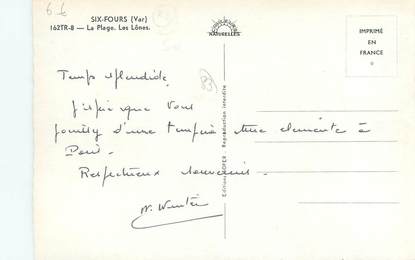 SIX-FOURS (Var)
162TR-8 — La Plage. Les Lônes.
NATURELLES
IMPRIMÉ
EN
FRANCE
Temps splendide.
J'espère que vous
jouissez d'une température clémente à
Paris.
Respectueux souvenirs.
Reproduction interdite